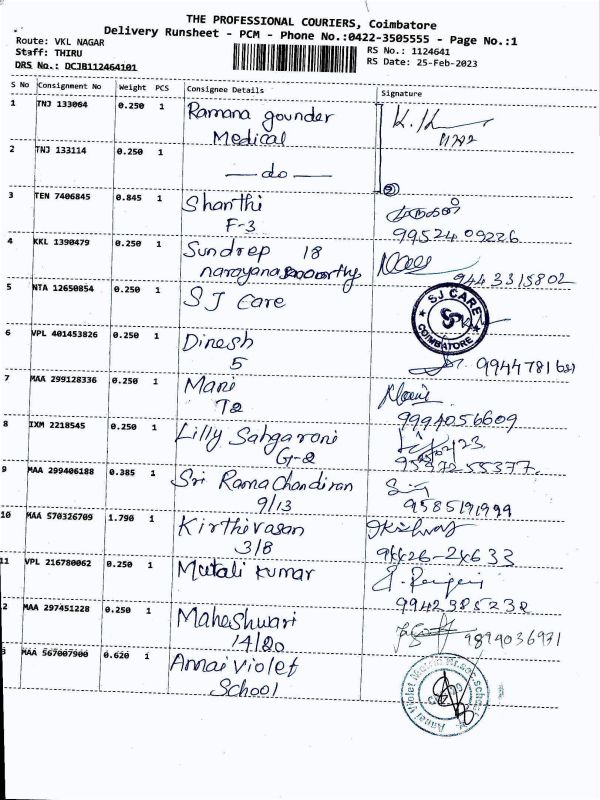 THE PROFESSIONAL COURIERS, Coimbatore
Delivery Runsheet - PCM - Phone No.:0422-3505555 - Page No.:1
Route: VKL NAGAR
RS No.: 1124641
Staff: THIRU
RS Date: 25-Feb-2023
DRS No.: DCJB112464101
S No Consignment No Weight PCS Consignee Details Signature
1 TNJ 133064 0.250 1 Ramana gounder
Medical
2 TNJ 133114 0.250 1
—do—
2
3 TEN 7406845 0.845 1 Shanthi
F-3 9952409226
4 KKL 1390479 0.250 1 Sundrep 18
9443315802
5 NTA 12650854 0.250 1 SJ Care
SJ CARE
COIMBATORE
6 VPL 401453826 0.250 1 Dinesh
5
7 MAA 299128336 0.250 1 Mani
T2 9994056609
8 IXM 2218545 0.250 1 Lilly
G-2
9 MAA 299406188 0.385 1 Sri Rama Chandiran
9/13 9585191999
10 MAA 570326709 1.790 1 Kirthivasan
3/8 94426-24633
11 VPL 216780062 0.250 1 Mutali Kumar
9942385232
2 MAA 297451228 0.250 1 Maheshwari
14/20 9894036971
MAA 567007900 0.620 1 Annai Violet
School